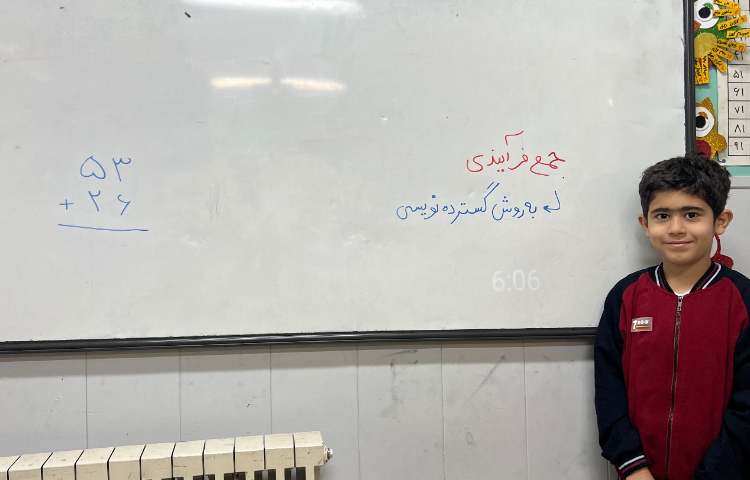 جمع فرآیندی
له به روش گسترده نویسی
۵۳
+ ۲۶
6:06
۵۱
۶۱
۷۱
۸۱
۹۱